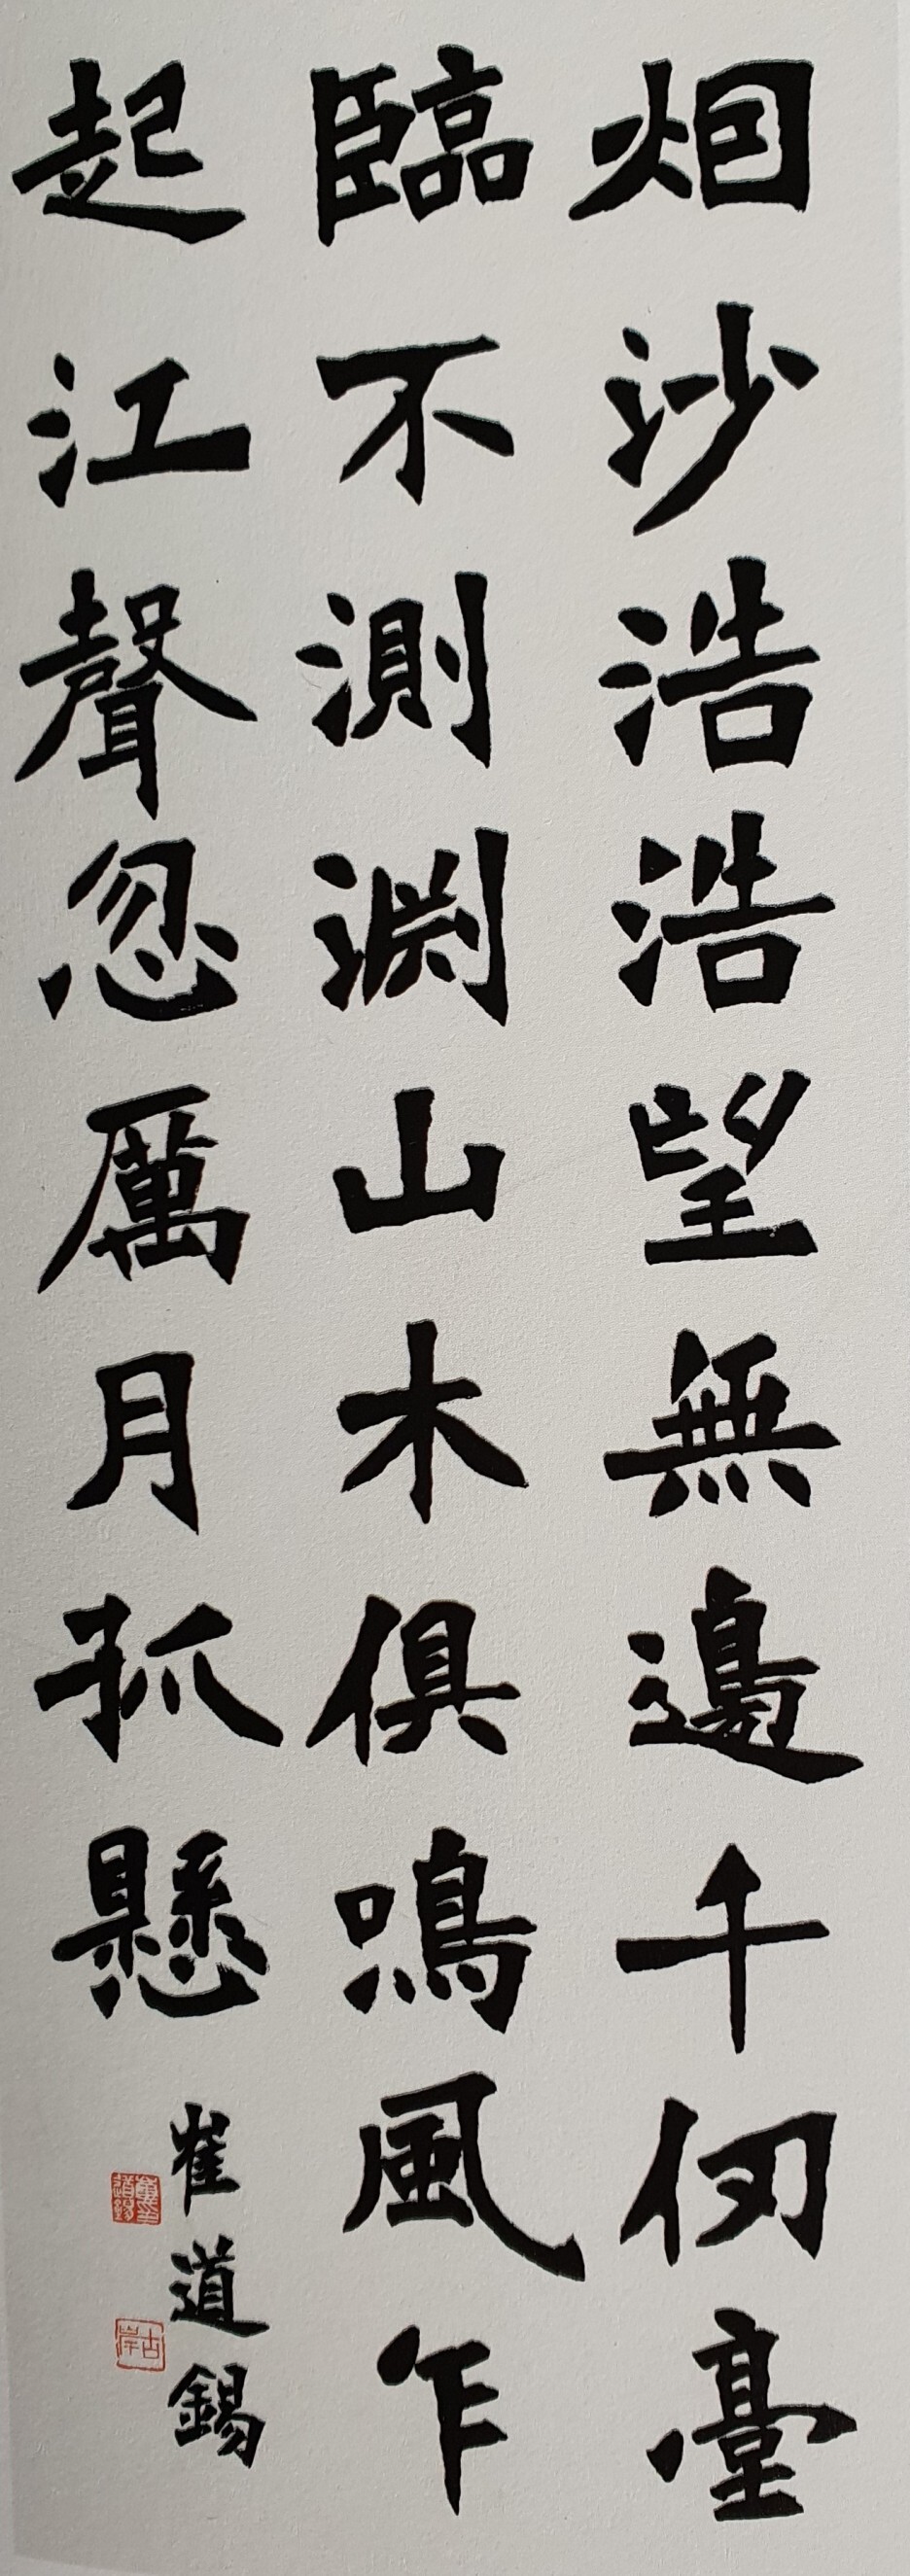 烟沙浩浩望無邊千仞臺
臨不測淵山木俱鳴風乍
起江聲忽厲月孤懸
崔道錫